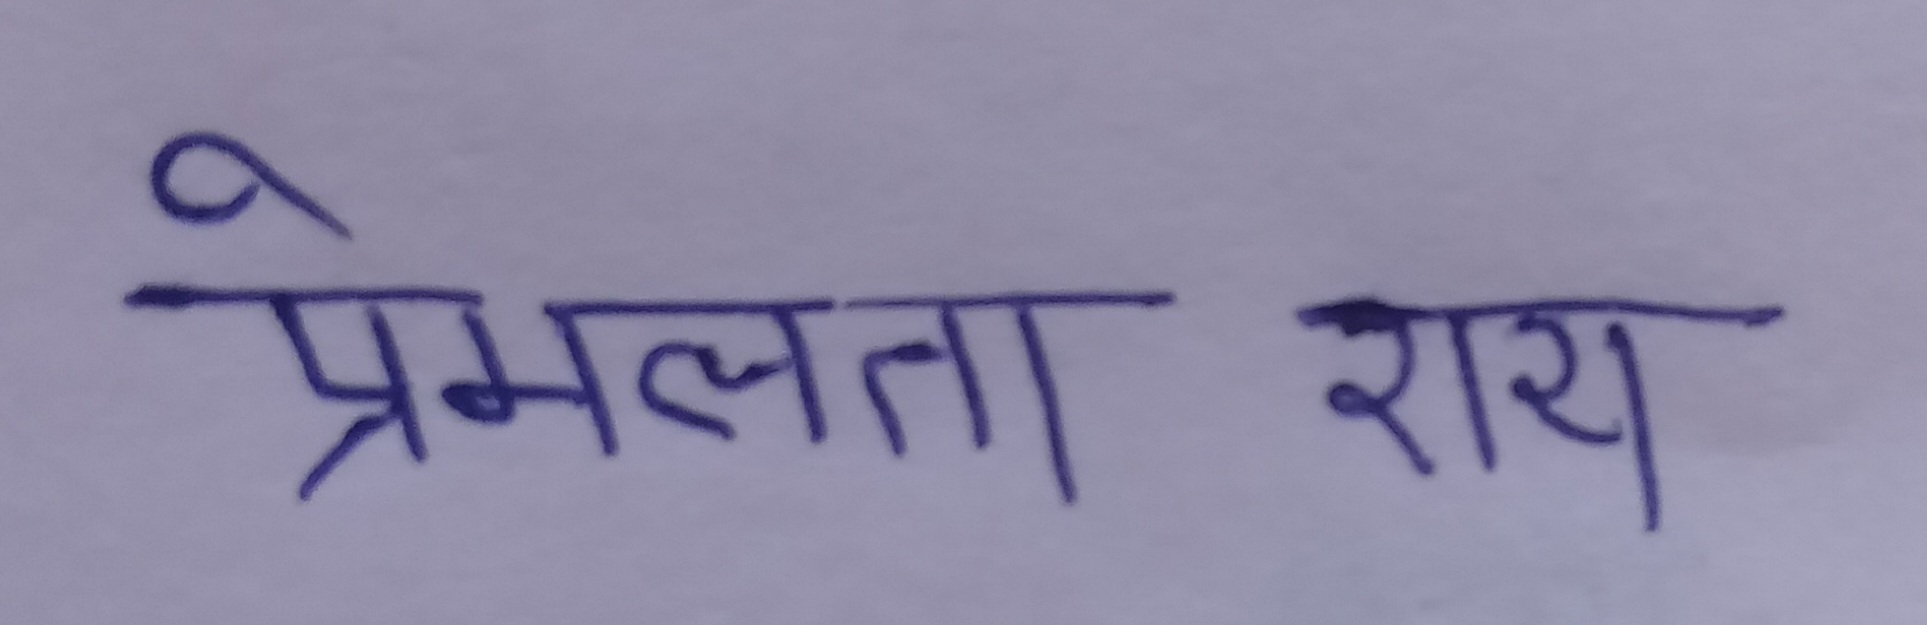 प्रेमलता राय